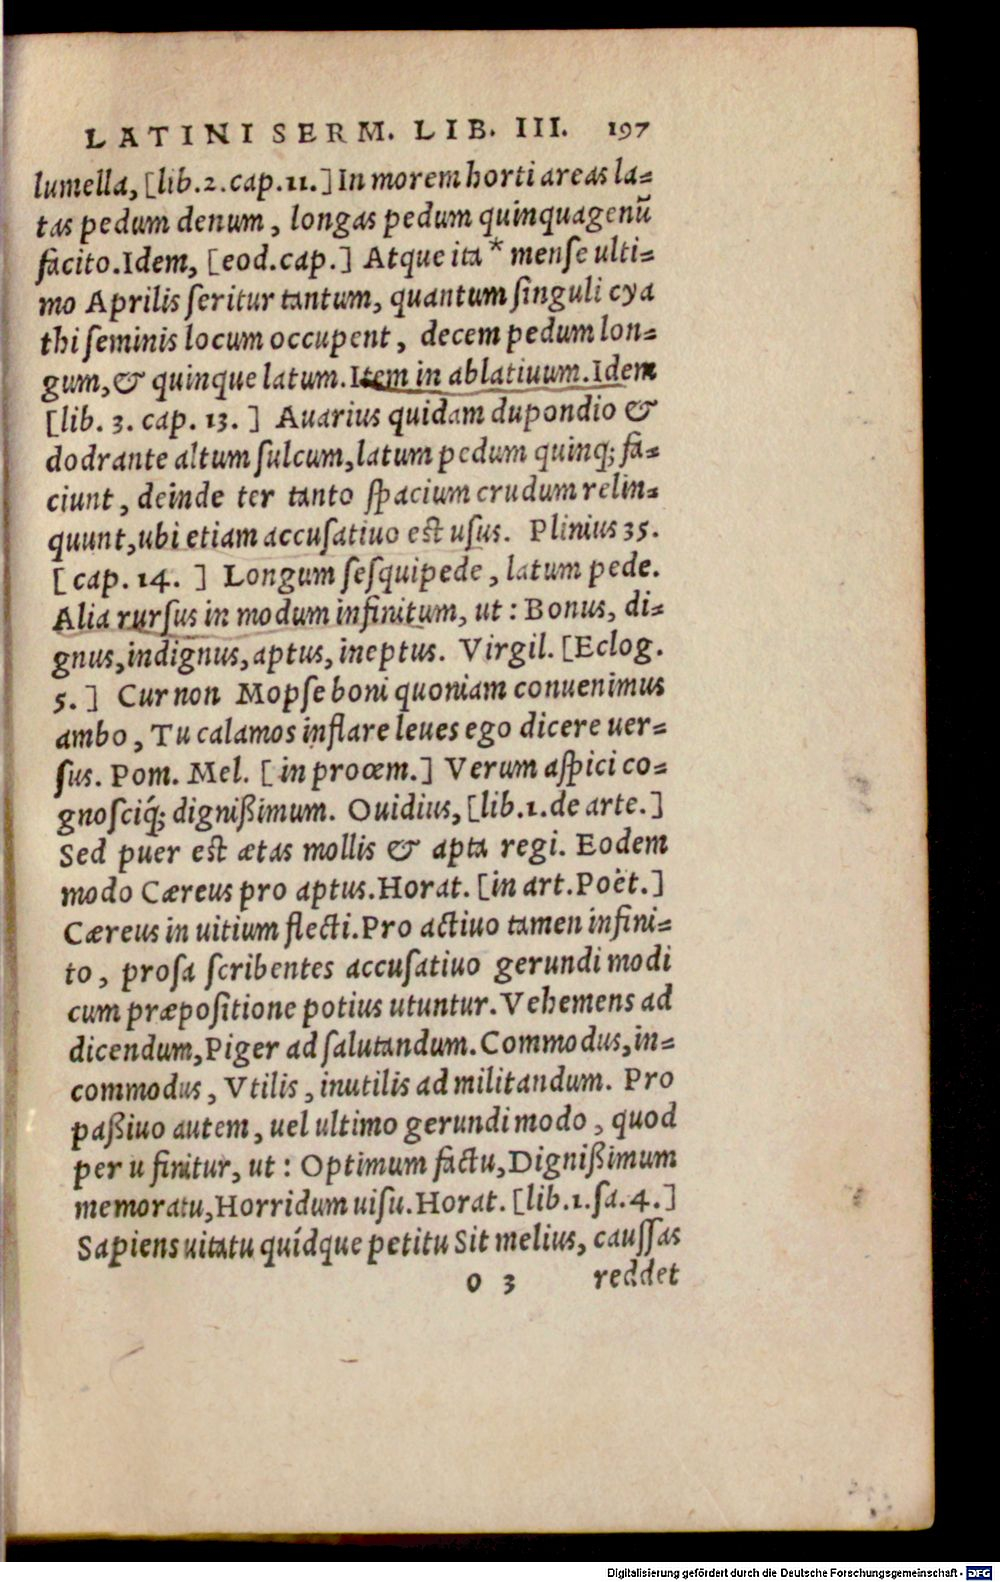 LATINI SERM. LIB. III. 197
lumella, [lib.2.cap.11.] In morem horti areas la=
tas pedum denum, longas pedum quinquagenũ
facito. Idem, [eod.cap.] Atque ita * mense ulti=
mo Aprilis seritur tantum, quantum singuli cya
thi seminis locum occupent, decem pedum lon=
gum, & quinque latum. Item in ablatiuum. Idem
[lib. 3. cap. 13. ] Auarius quidam dupondio &
dodrante altum sulcum, latum pedum quinq; fa=
ciunt, deinde ter tanto spacium crudum relin=
quunt, ubi etiam accusatiuo est usus. Plinius 35.
[ cap. 14. ] Longum sesquipede, latum pede.
Alia rursus in modum infinitum, ut : Bonus, di=
gnus, indignus, aptus, ineptus. Virgil. [Eclog.
5. ] Cur non Mopse boni quoniam conuenimus
ambo, Tu calamos inflare leues ego dicere uer=
sus. Pom. Mel. [ in prooem.] Verum aspici co=
gnosciq́; dignißimum. Ouidius, [lib.1.de arte.]
Sed puer est ætas mollis & apta regi. Eodem
modo Cæreus pro aptus. Horat. [in art. Poët.]
Cæreus in uitium flecti. Pro actiuo tamen infini=
to, prosa scribentes accusatiuo gerundi modi
cum præpositione potius utuntur. Vehemens ad
dicendum, Piger ad salutandum. Commodus, in=
commodus, Vtilis, inutilis ad militandum. Pro
paßiuo autem, uel ultimo gerundi modo, quod
per u finitur, ut : Optimum factu, Dignißimum
memoratu, Horridum uisu. Horat. [lib.1.sa.4.]
Sapiens uitatu quídque petitu Sit melius, caussas
o 3 reddet
Digitalisierung gefördert durch die Deutsche Forschungsgemeinschaft - DFG